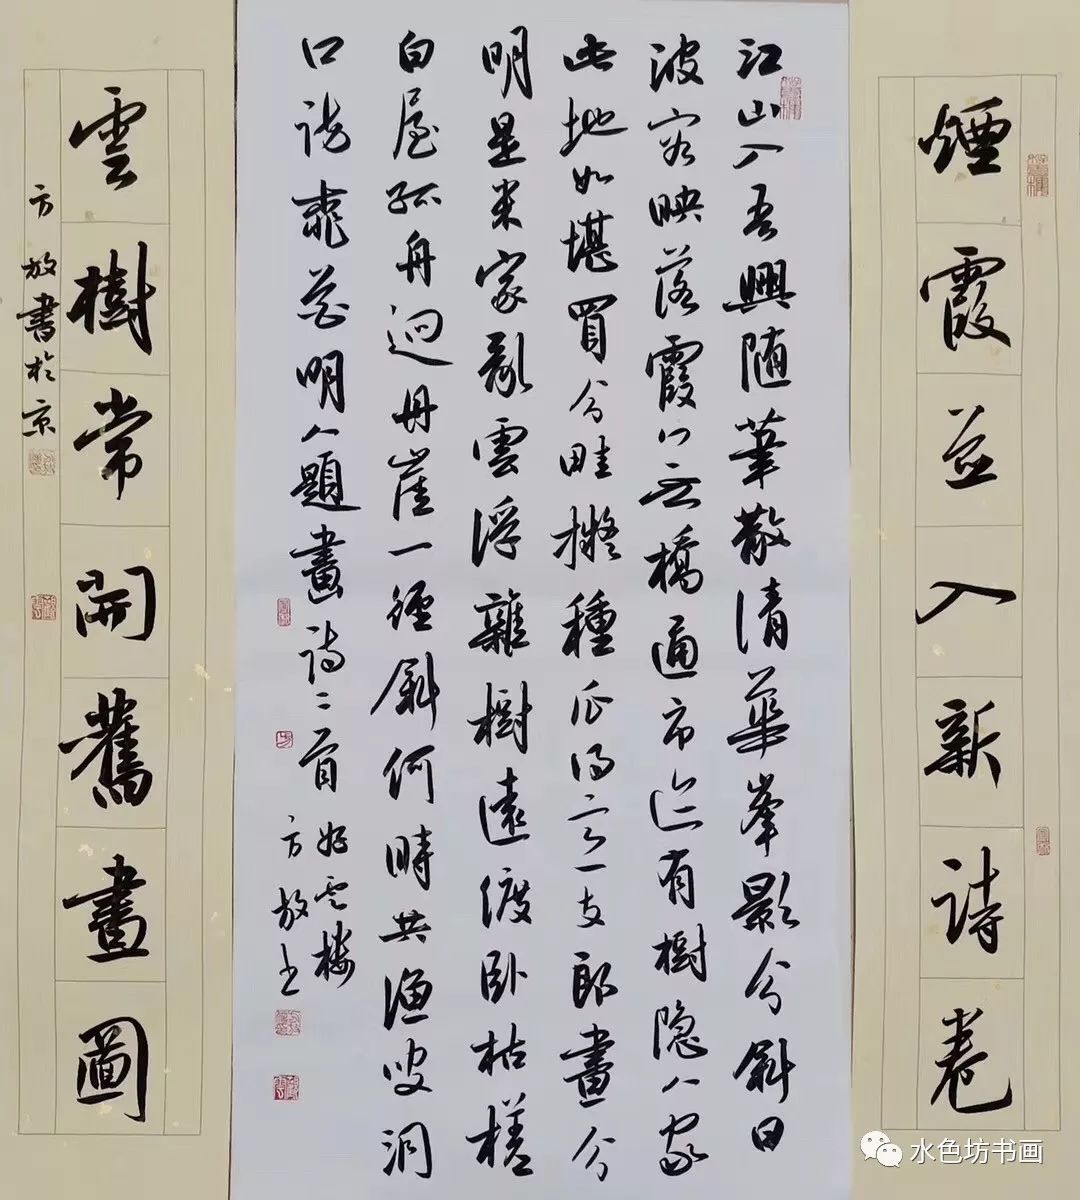 煙霞並入新詩卷
江山入吾興随筆散清華峯影分斜日
波容映落霞門無橋通市近有樹隐人家
此地如堪買分畦擬種瓜支郎畫分
明是米家雲浮雜樹遠渡臥枯槎
白屋孤舟迥丹崖一徑斜何時共漁叟洞
口訪桃花明人題畫詩二首
方放書
雲樹常開舊畫圖
方放書於京
水色坊书画